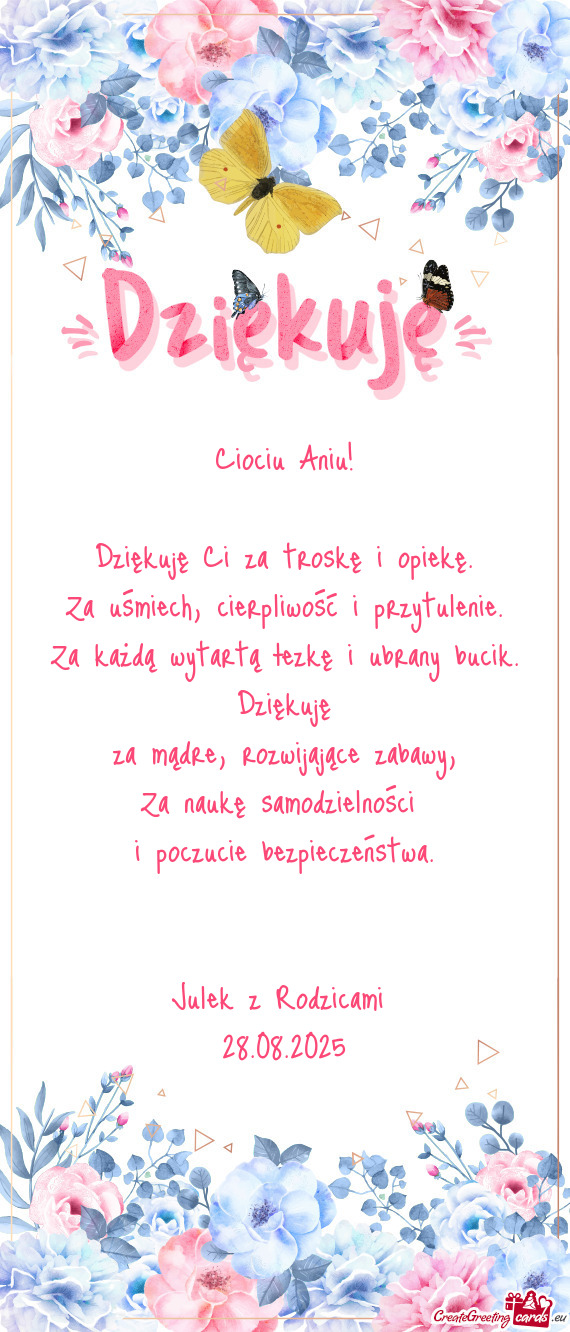 Dziękuję
Ciociu Aniu!
Dziękuję Ci za troskę i opiekę.
Za uśmiech, cierpliwość i przytulenie.
Za każdą wytartą łezkę i ubrany bucik.
Dziękuję
za mądre, rozwijające zabawy,
Za naukę samodzielności
i poczucie bezpieczeństwa.
Julek z Rodzicami
28.08.2025
CreateGreeting cards .eu